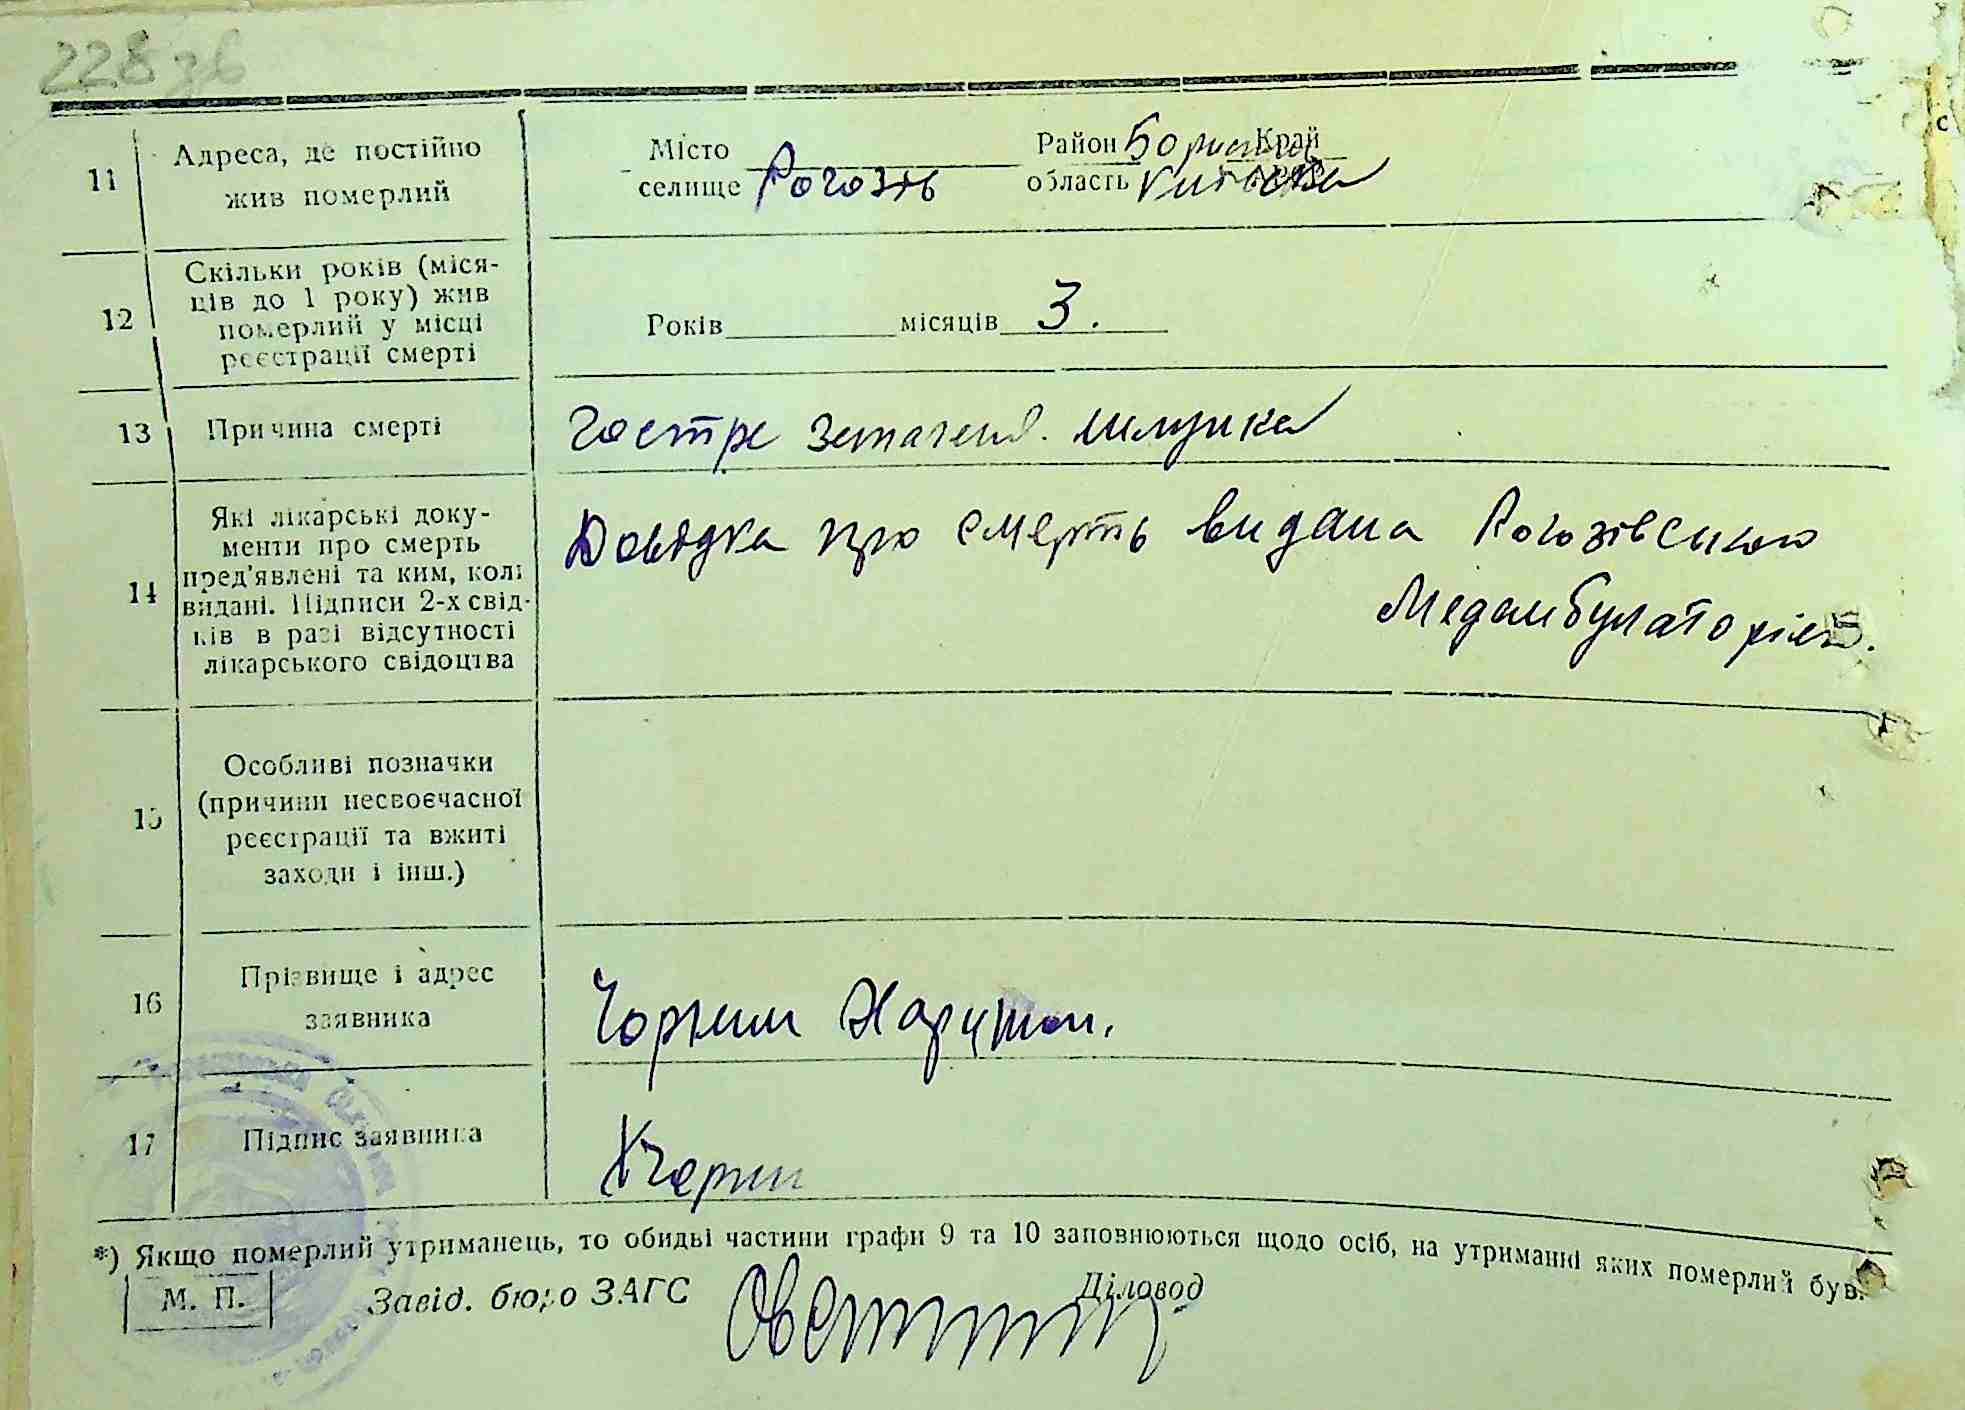 228 зв
11 Адреса, де постійно жив померлий
Місто Район Край
селище Рогозів область Київська
12 Скільки років (місяців до 1 року) жив померлий у місці реєстрації смерті
Років місяців 3.
13 Причина смерті
Гостре шлунка
14 Які лікарські документи про смерть пред'явлені та ким, коли видані. Підписи 2-х свідків в разі відсутності лікарського свідоцтва
Довідка про смерть видана Рогозівською
Медамбулаторією.
15 Особливі позначки
(причини несвоєчасної
реєстрації та вжиті
заходи і інш.)
16 Прізвище і адрес
заявника
Чорний Харитон.
17 Підпис заявника
ХЧорний
*) Якщо померлий утриманець, то обидві частини графи 9 та 10 заповнюються щодо осіб, на утриманні яких померлий був.
М. П. Завід. бюро ЗАГС Діловод